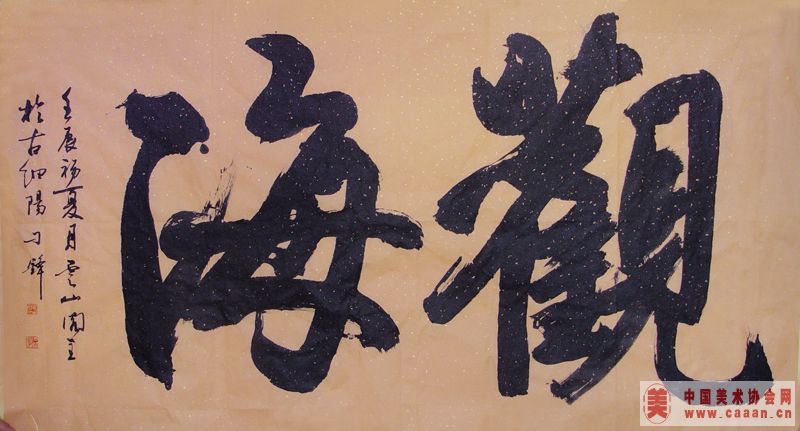 觀海
壬辰初夏月雲山閣主
於古細陽刁鋒
美
中国美术协会网
www.caaan.cn